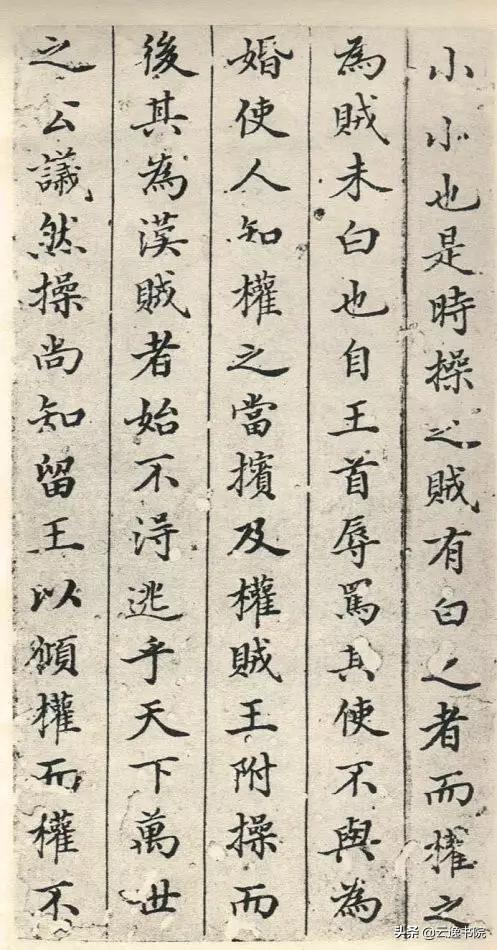 小小也是時操之賊有白之者而權之
為賊未白也自王首辱罵其使不與為
婚使人知權之當擯及權賊王附操而
後其為漢賊者始不得逃乎天下萬世
之公議然操尚知留王以傾權而權不
头条@云逸书院